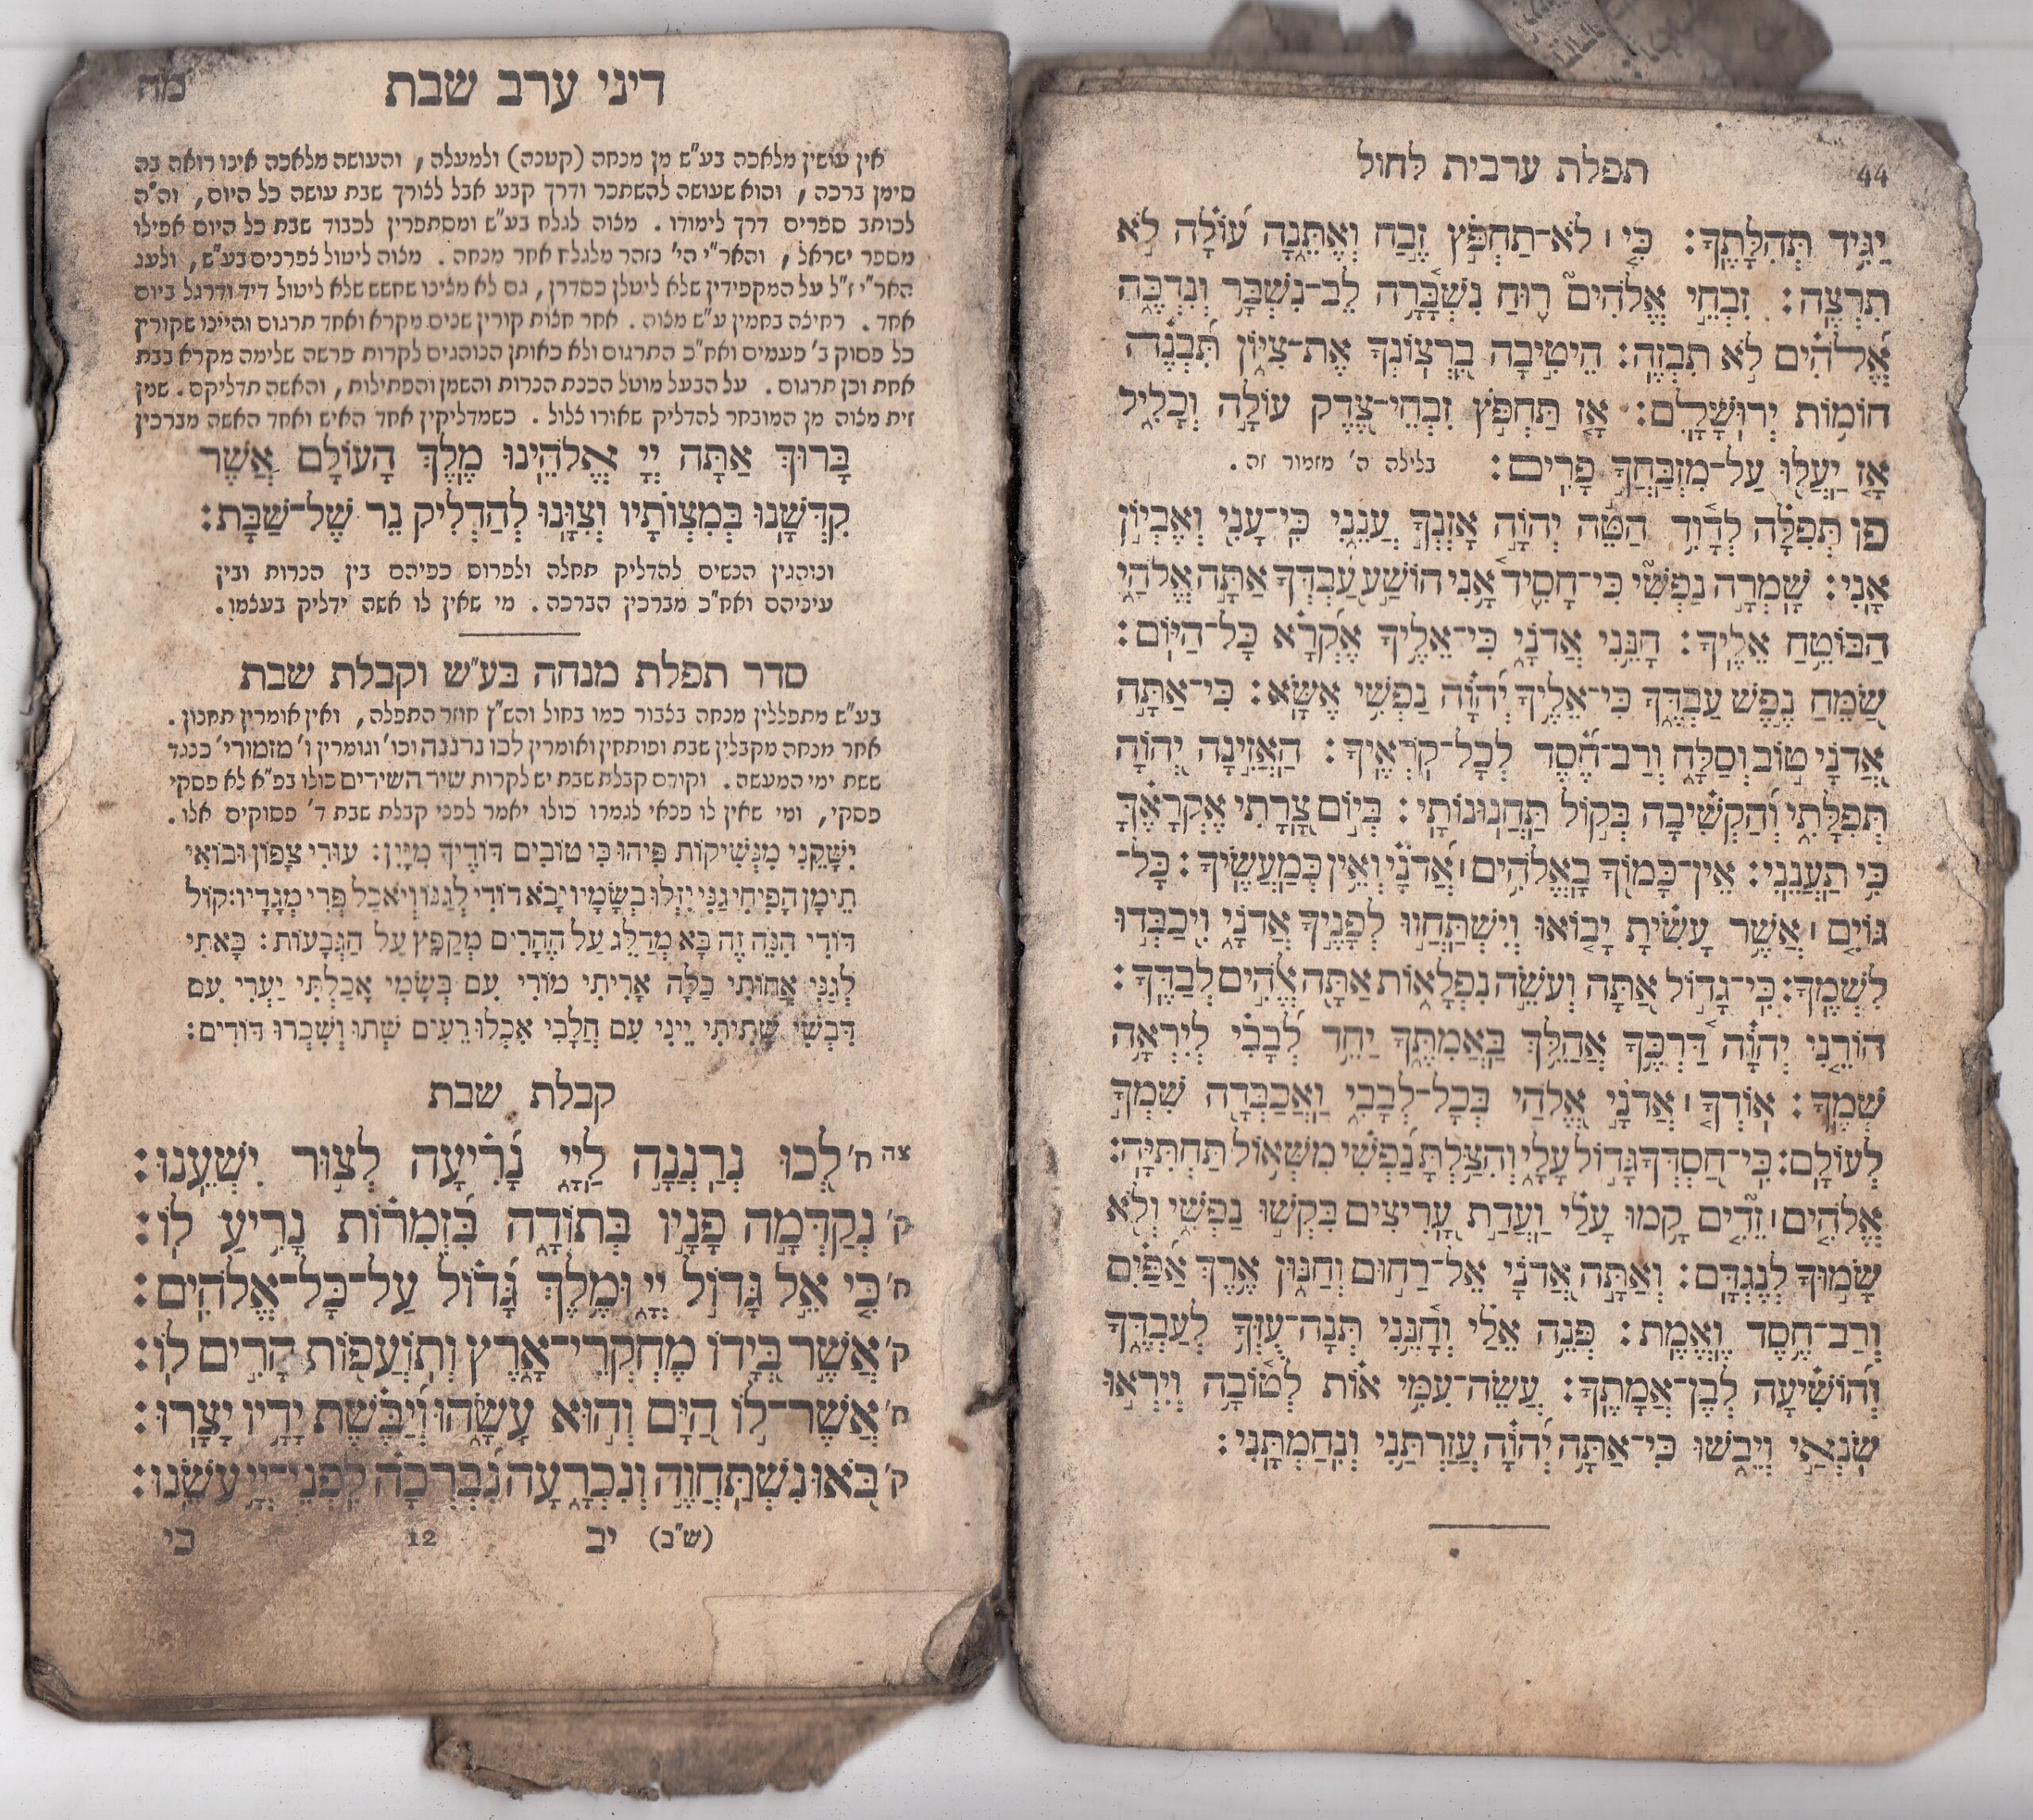 44 תפלת ערבית לחול
יַגִּיד תְּהִלָּתֶךָ׃ כִּי ׀ לֹא־תַחְפֹּץ זֶבַח וְאֶתֵּנָה עוֹלָה לֹא
תִרְצֶה׃ זִבְחֵי אֱלֹהִים רוּחַ נִשְׁבָּרָה לֵב־נִשְׁבָּר וְנִדְכֶּה
אֱלֹהִים לֹא תִבְזֶה׃ הֵיטִיבָה בִרְצוֹנְךָ אֶת־צִיּוֹן תִּבְנֶה
חוֹמוֹת יְרוּשָׁלָםִ׃ אָז תַּחְפֹּץ זִבְחֵי־צֶדֶק עוֹלָה וְכָלִיל
אָז יַעֲלוּ עַל־מִזְבַּחֲךָ פָרִים׃ בלילה ה' מזמור זה.
פו תְּפִלָּה לְדָוִד הַטֵּה יְהוָֹה אָזְנְךָ עֲנֵנִי כִּי־עָנִי וְאֶבְיוֹן
אָנִי׃ שָׁמְרָה נַפְשִׁי כִּי־חָסִיד אָנִי הוֹשַׁע עַבְדְּךָ אַתָּה אֱלֹהַי
הַבּוֹטֵחַ אֵלֶיךָ׃ חָנֵּנִי אֲדֹנָי כִּי־אֵלֶיךָ אֶקְרָא כָּל־הַיּוֹם׃
שַׂמֵּחַ נֶפֶשׁ עַבְדֶּךָ כִּי־אֵלֶיךָ יְהוָֹה נַפְשִׁי אֶשָּׂא׃ כִּי־אַתָּה
אֲדֹנָי טוֹב וְסַלָּח וְרַב־חֶסֶד לְכָל־קֹרְאֶיךָ׃ הַאֲזִינָה יְהוָֹה
תְּפִלָּתִי וְהַקְשִׁיבָה בְּקוֹל תַּחֲנוּנוֹתָי׃ בְּיוֹם צָרָתִי אֶקְרָאֶךָּ
כִּי תַעֲנֵנִי׃ אֵין־כָּמוֹךָ בָאֱלֹהִים ׀ אֲדֹנָי וְאֵין כְּמַעֲשֶׂיךָ׃ כָּל־
גּוֹיִם ׀ אֲשֶׁר עָשִׂיתָ יָבוֹאוּ וְיִשְׁתַּחֲווּ לְפָנֶיךָ אֲדֹנָי וִיכַבְּדוּ
לִשְׁמֶךָ׃ כִּי־גָדוֹל אַתָּה וְעֹשֵׂה נִפְלָאוֹת אַתָּה אֱלֹהִים לְבַדֶּךָ׃
הוֹרֵנִי יְהוָֹה דַּרְכֶּךָ אֲהַלֵּךְ בַּאֲמִתֶּךָ יַחֵד לְבָבִי לְיִרְאָה
שְׁמֶךָ׃ אוֹדְךָ ׀ אֲדֹנָי אֱלֹהַי בְּכָל־לְבָבִי וַאֲכַבְּדָה שִׁמְךָ
לְעוֹלָם׃ כִּי־חַסְדְּךָ גָּדוֹל עָלָי וְהִצַּלְתָּ נַפְשִׁי מִשְּׁאוֹל תַּחְתִּיָּה׃
אֱלֹהִים ׀ זֵדִים קָמוּ עָלַי וַעֲדַת עָרִיצִים בִּקְשׁוּ נַפְשִׁי וְלֹא
שָׂמוּךָ לְנֶגְדָּם׃ וְאַתָּה אֲדֹנָי אֵל־רַחוּם וְחַנּוּן אֶרֶךְ אַפַּיִם
וְרַב־חֶסֶד וֶאֱמֶת׃ פְּנֵה אֵלַי וְחָנֵּנִי תְּנָה־עֻזְּךָ לְעַבְדֶּךָ
וְהוֹשִׁיעָה לְבֶן־אֲמָתֶךָ׃ עֲשֵׂה־עִמִּי אוֹת לְטוֹבָה וְיִרְאוּ
שֹׂנְאַי וְיֵבֹשׁוּ כִּי־אַתָּה יְהוָֹה עֲזַרְתַּנִי וְנִחַמְתָּנִי׃
דיני ערב שבת מח
אין עושין מלאכה בע"ש מן מנחה (קטנה) ולמעלה, והעושה מלאכה אינו רואה בה
סימן ברכה, והוא שעושה להשתכר ודרך קבע אבל לצורך שבת עושה כל היום, וה"ה
לכותב ספרים דרך לימודו. מצוה לגלח בע"ש ומסתפרין לכבוד שבת כל היום אפילו
מספר ישראל, והאר"י הי' נזהר מלגלח אחר מנחה. מצוה ליטול צפרנים בע"ש, ולעג
האר"י ז"ל על המקפידין שלא ליטלן כסדרן, גם לא מצינו שחשש שלא ליטול דיד ודרגל ביום
אחד. רחיצה בחמין ע"ש מצוה. אחר חצות קורין שנים מקרא ואחד תרגום והיינו שקורין
כל פסוק ב' פעמים ואח"כ התרגום ולא כאותן הנוהגים לקרות פרשה שלימה מקרא בבת
אחת וכן תרגום. על הבעל מוטל הכנת הנרות והשמן והפתילות, והאשה תדליקם. שמן
זית מצוה מן המובחר להדליק שאורו צלול. כשמדליקין אחד האיש ואחד האשה מברכין
בָּרוּךְ אַתָּה יְיָ אֱלֹהֵינוּ מֶלֶךְ הָעוֹלָם אֲשֶׁר
קִדְּשָׁנוּ בְּמִצְוֹתָיו וְצִוָּנוּ לְהַדְלִיק נֵר שֶׁל־שַׁבָּת׃
ונוהגין הנשים להדליק תחלה ולפרוס כפיהם בין הנרות ובין
עיניהם ואח"כ מברכין הברכה. מי שאין לו אשה ידליק בעצמו.
סדר תפלת מנחה בע"ש וקבלת שבת
בע"ש מתפללין מנחה בצבור כמו בחול והש"ץ חוזר התפלה, ואין אומרין תחנון.
אחר מנחה מקבלין שבת ופותחין ואומרין לכו נרננה וכו' וגומרין ו' מזמורי' כנגד
ששת ימי המעשה. וקודם קבלת שבת יש לקרות שיר השירים כולו בפ"א לא פסקי
פסקי, ומי שאין לו פנאי לגמרו כולו יאמר לפני קבלת שבת ד' פסוקים אלו.
יִשָּׁקֵנִי מִנְּשִׁיקוֹת פִּיהוּ כִּי טוֹבִים דּוֹדֶיךָ מִיָּיִן׃ עוּרִי צָפוֹן וּבוֹאִי
תֵימָן הָפִיחִי גַנִּי יִזְּלוּ בְשָׂמָיו יָבֹא דוֹדִי לְגַנּוֹ וְיֹאכַל פְּרִי מְגָדָיו׃ קוֹל
דּוֹדִי הִנֵּה זֶה בָּא מְדַלֵּג עַל הֶהָרִים מְקַפֵּץ עַל הַגְּבָעוֹת׃ בָּאתִי
לְגַנִּי אֲחוֹתִי כַּלָּה אָרִיתִי מוֹרִי עִם בְּשָׂמִי אָכַלְתִּי יַעְרִי עִם
דִּבְשִׁי שָׁתִיתִי יֵינִי עִם חֲלָבִי אִכְלוּ רֵעִים שְׁתוּ וְשִׁכְרוּ דּוֹדִים׃
קבלת שבת
צה ח' לְכוּ נְרַנְּנָה לַיְיָ נָרִיעָה לְצוּר יִשְׁעֵנוּ׃
ק' נְקַדְּמָה פָנָיו בְּתוֹדָה בִּזְמִרוֹת נָרִיעַ לוֹ׃
ח' כִּי אֵל גָּדוֹל יְיָ וּמֶלֶךְ גָּדוֹל עַל־כָּל־אֱלֹהִים׃
ק' אֲשֶׁר בְּיָדוֹ מֶחְקְרֵי־אָרֶץ וְתוֹעֲפוֹת הָרִים לוֹ׃
ח' אֲשֶׁר־לוֹ הַיָּם וְהוּא עָשָׂהוּ וְיַבֶּשֶׁת יָדָיו יָצָרוּ׃
ק' בֹּאוּ נִשְׁתַּחֲוֶה וְנִכְרָעָה נִבְרְכָה לִפְנֵי־יְיָ עֹשֵׂנוּ׃
(ש"ב) יב 12 כי